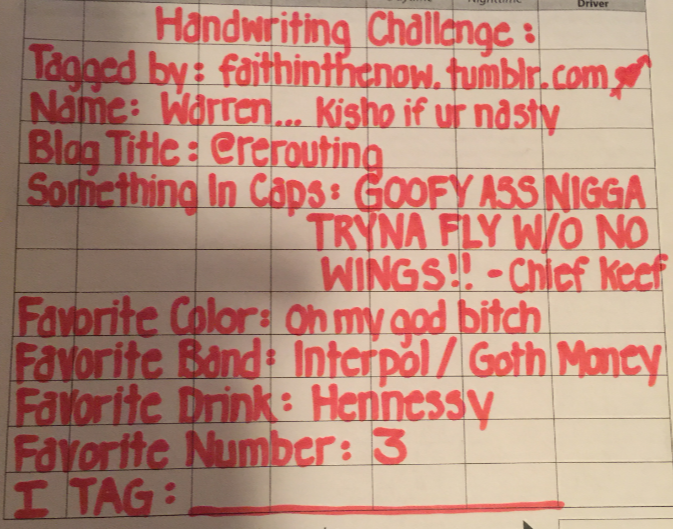 Driver
Handwriting Challenge:
Tagged by: faithinthenow.tumblr.com
Name: Warren... Kisho if ur nasty
Blog Title: @rerouting
Something In Caps: GOOFY ASS NIGGA
TRYNA FLY W/O NO
WINGS!! - Chief Keef
Favorite Color: oh my god bitch
Favorite Band: Interpol / Goth Money
Favorite Drink: Hennessy
Favorite Number: 3
I TAG: